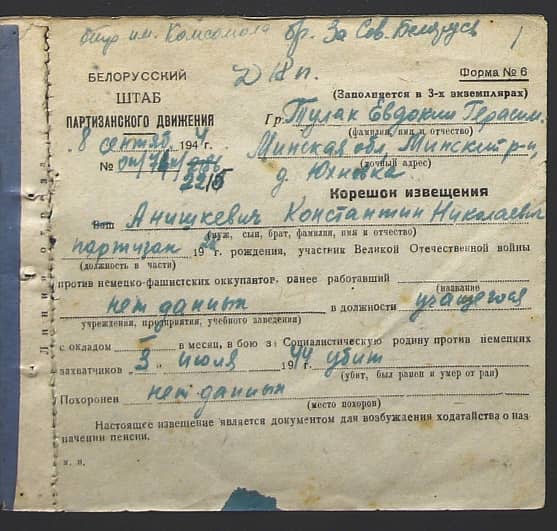 отр им. Комсомола бр. За Сов. Беларусь
Д 18 п.
БЕЛОРУССКИЙ
ШТАБ
ПАРТИЗАНСКОГО ДВИЖЕНИЯ
8 сентяб 1944
№
22/5
Форма № 6
(Заполняется в 3-х экземплярах)
Гр. Тулак Евдокии Герасим.
(фамилия, имя и отчество)
Минская обл, Минский р-н,
(точный адрес)
д. Юхновка.
Корешок извещения
Ваш Анишкевич Константин Николаевич
(муж, сын, брат, фамилия, имя и отчество)
партизан 19 г. рождения, участник Великой Отечественной войны
(должность в части)
против немецко-фашистских оккупантов, ранее работавший
(название
нет данных в должности учащегося
учреждения, предприятия, учебного заведения)
с окладом в месяц, в бою за Социалистическую родину против немецких
захватчиков "3" июля 1944 убит
(убит, был ранен и умер от ран)
Похоронен нет данных
(место похорон)
Настоящее извещение является документом для возбуждения ходатайства о наз-
начении пенсии.
Линия отреза